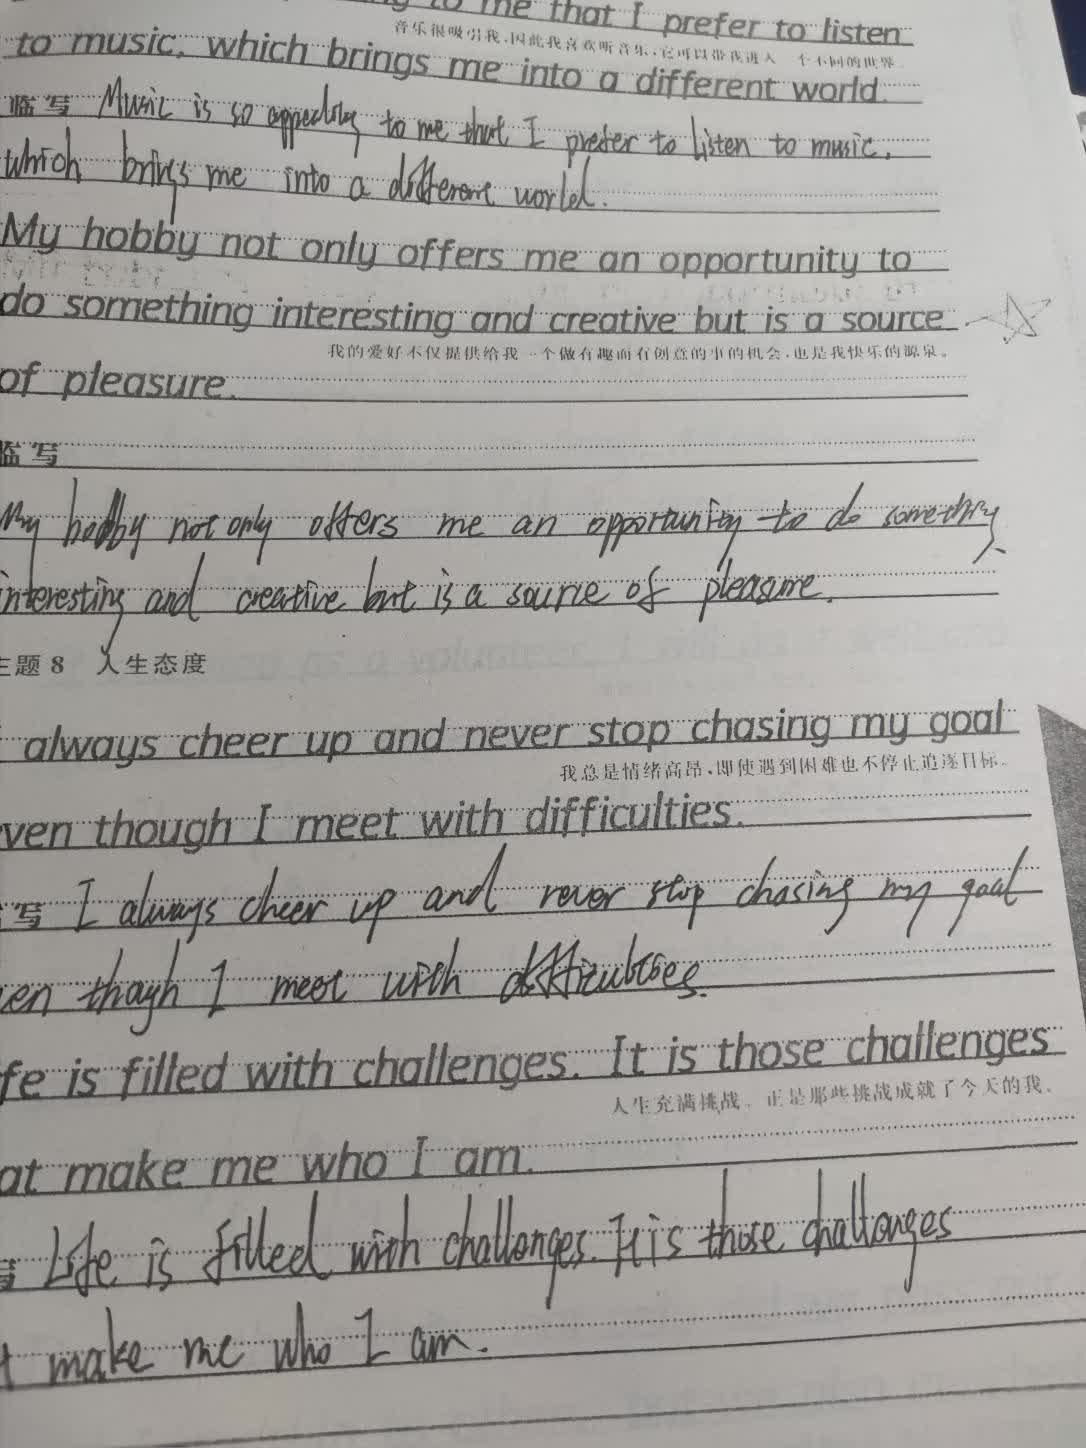 to me that I prefer to listen
音乐很吸引我,因此我喜欢听音乐,它可以带我进入一个不同的世界。
to music, which brings me into a different world.
临写 Music is so appealing to me that I prefer to listen to music.
which brings me into a different world.
My hobby not only offers me an opportunity to
do something interesting and creative but is a source
我的爱好不仅提供给我一个做有趣而有创意的事的机会,也是我快乐的源泉。
of pleasure.
临写
My hobby not only offers me an opportunity to do something
interesting and creative but is a source of pleasure.
主题 8 人生态度
always cheer up and never stop chasing my goal
我总是情绪高昂,即使遇到困难也不停止追逐目标。
ven though I meet with difficulties.
写 I always cheer up and never stop chasing my goal
en though I meet with difficulties.
fe is filled with challenges. It is those challenges
人生充满挑战。正是那些挑战成就了今天的我。
at make me who I am.
写 Life is filled with challenges. It is those challenges
t make me who I am.